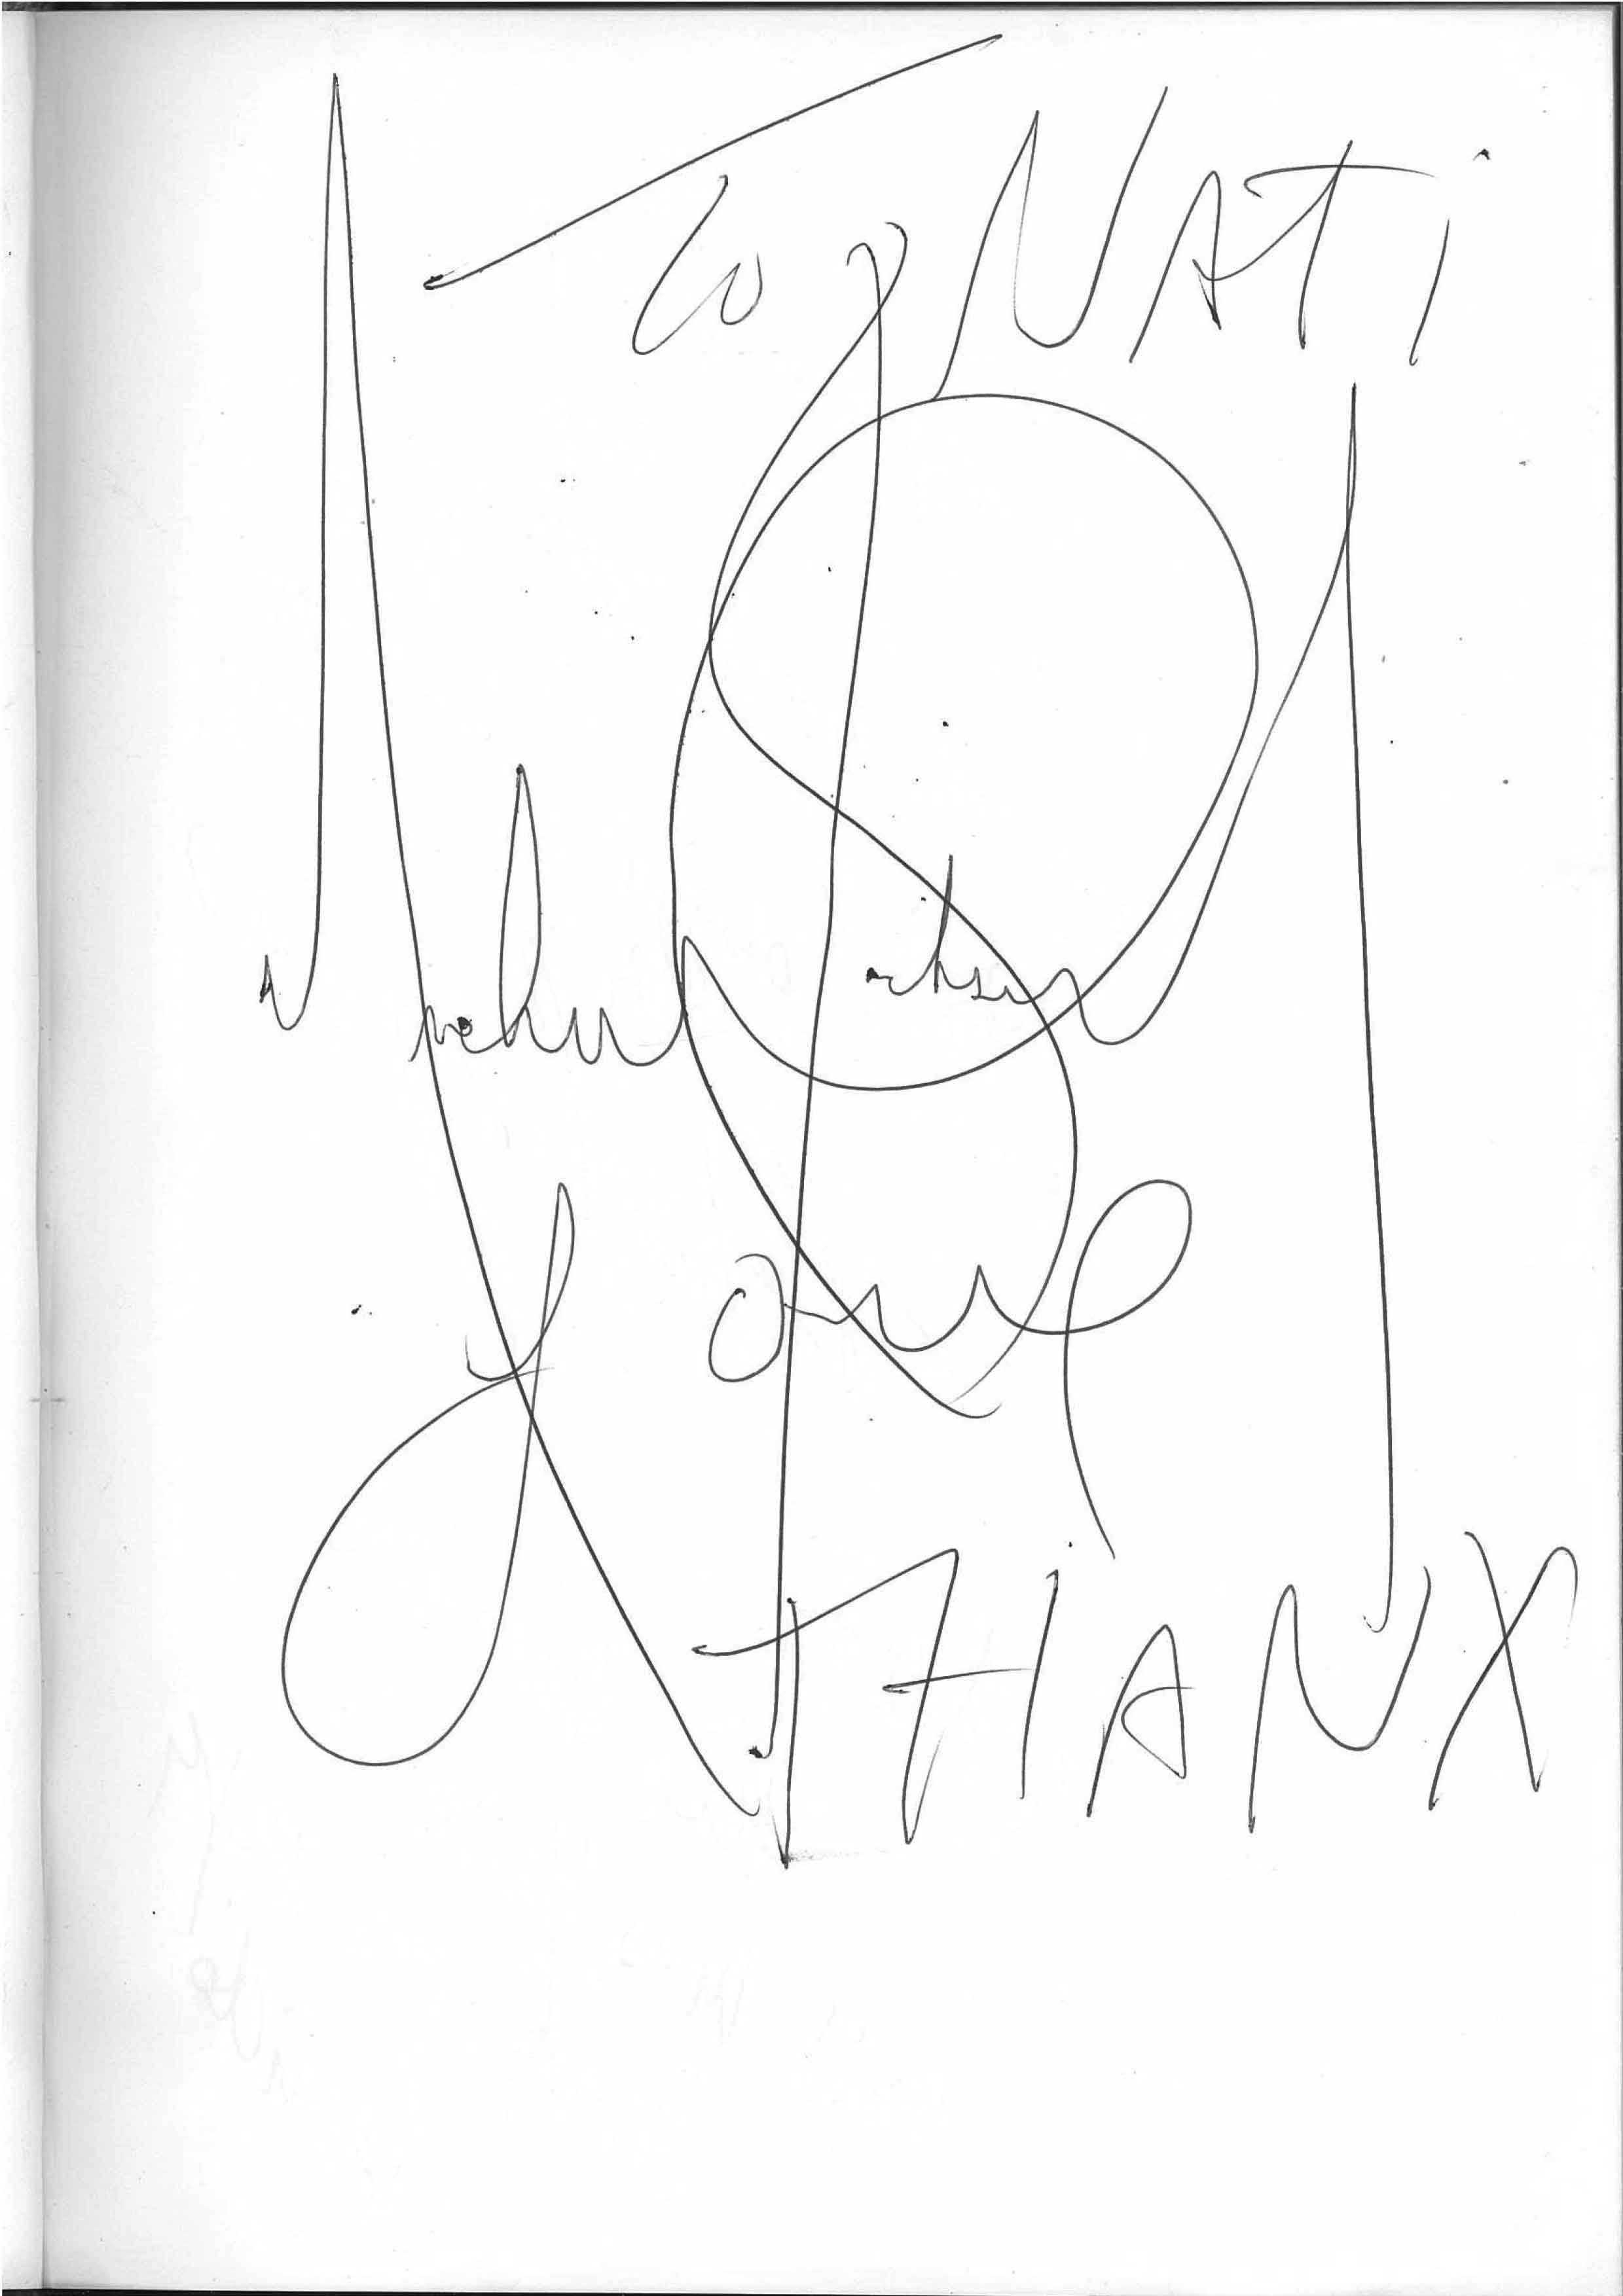 To NATi
Michael Jackson
Love
THANX